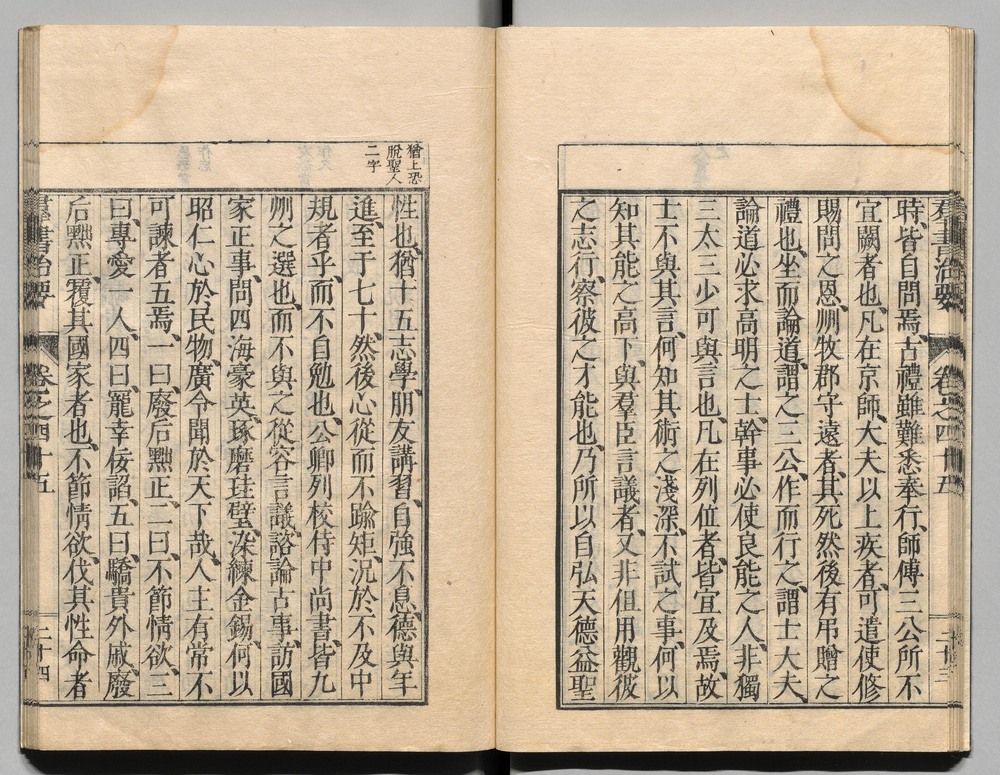 羣書治要 卷之四十五 二十三
時、皆自問焉、古禮雖難悉奉行、師傅三公所不
宜闕者也、凡在京師、大夫以上疾者、可遣使修
賜問之恩、州牧郡守遠者、其死然後有弔贈之
禮也、坐而論道、謂之三公、作而行之、謂士大夫、
論道必求高明之士、幹事必使良能之人、非獨
三太三少可與言也、凡在列位者、皆宜及焉、故
士不與其言、何知其術之淺深、不試之事、何以
知其能之高下、與羣臣言議者、又非但用觀彼
之志行、察彼之才能也、乃所以自弘天德、益聖
猶上恐
脫聖人
二字
性也、猶十五志學、朋友講習、自強不息、德與年
進、至于七十、然後心從而不踰矩、況於不及中
規者乎、而不自勉也、公卿列校、侍中尚書、皆九
州之選也、而不與之從容言議、諮論古事、訪國
家正事、問四海豪英、琢磨珪璧、染練金錫、何以
昭仁心於民物、廣令聞於天下哉、人主有常不
可諫者五焉、一曰、廢后黜正、二曰、不節情欲、三
曰、專愛一人、四曰、寵幸佞諂、五曰、驕貴外戚、廢
后黜正、覆其國家者也、不節情欲、伐其性命者
羣書治要 卷之四十五 二十四